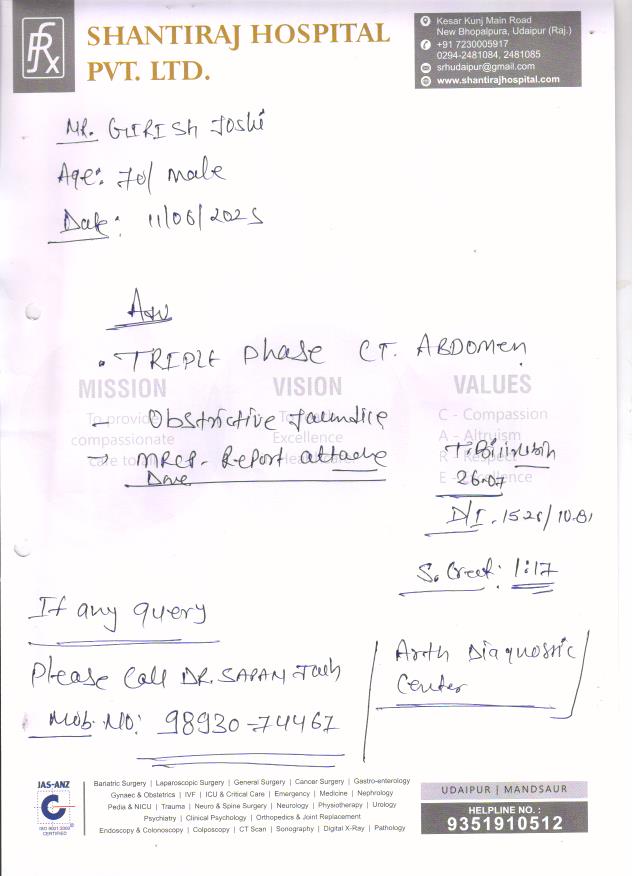 SHANTIRAJ HOSPITAL
PVT. LTD.
Kesar Kunj Main Road
New Bhopalpura, Udaipur (Raj.)
+91 7230005917
0294-2481084, 2481085
srhudaipur@gmail.com
www.shantirajhospital.com
MR. GIRISH Joshi
Age: 70/ male
Date: 11/06/2025
Adv
• TRIPLE phase CT. ABDOMEN
MISSION VISION VALUES
- Obstrictive Jaundice
To provide
C - Compassion
compassionate Excellence A - Altruism
→ MRCP- Report attache
Done
T. Bilirubin
26.07
D/I. 15.26/10.81
S. Creat: 1.17
If any query
Please call DR. SAPAN Jain
Mob. NO: 98930-74467
Arth Diagnostic
Center
JAS-ANZ
ISO 9001:2008
CERTIFIED
Bariatric Surgery | Laparoscopic Surgery | General Surgery | Cancer Surgery | Gastro-enterology
Gynaec & Obstetrics | IVF | ICU & Critical Care | Emergency | Medicine | Nephrology
Pedia & NICU | Trauma | Neuro & Spine Surgery | Neurology | Physiotherapy | Urology
Psychiatry | Clinical Psychology | Orthopedics & Joint Replacement
Endoscopy & Colonoscopy | Colposcopy | CT Scan | Sonography | Digital X-Ray | Pathology
UDAIPUR | MANDSAUR
HELPLINE NO. :
9351910512